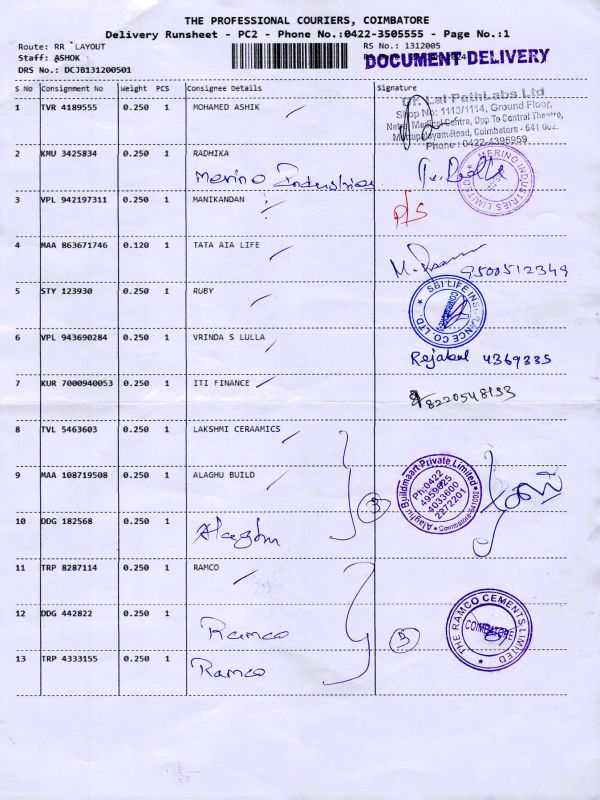 THE PROFESSIONAL COURIERS, COIMBATORE
Delivery Runsheet - PC2 - Phone No.:0422-3505555 - Page No.:1
Route: RR LAYOUT
RS No.: 1312005
Staff: ASHOK
DOCUMENT DELIVERY
DRS No.: DCJB131200501
S No Consignment No Weight PCS Consignee Details Signature
1 TVR 4189555 0.250 1 MOHAMED ASHIK
Dr. Lal PathLabs Ltd
Shop No: 1113/1114, Ground Floor,
Medical Centre, Opp To Central Theatre,
Mettupalayam Road, Coimbatore - 641 002.
Phone : 0422-4395959
2 KMU 3425834 0.250 1 RADHIKA
Merino Industries
MERINO INDUSTRIES LIMITED
3 VPL 942197311 0.250 1 MANIKANDAN
P/S
4 MAA 863671746 0.120 1 TATA AIA LIFE
9500512349
5 STY 123930 0.250 1 RUBY
SBI LIFE INSURANCE CO LTD.
6 VPL 943690284 0.250 1 VRINDA S LULLA
Rejabul 4369335
7 KUR 7000940053 0.250 1 ITI FINANCE
8220548133
8 TVL 5463603 0.250 1 LAKSHMI CERAAMICS
9 MAA 108719508 0.250 1 ALAGHU BUILD
Alaghu Buildmaart Private Limited
Ph:0422
4959625
4033600
2272201
Coimbatore-641024
3
10 DDG 182568 0.250 1 Alaghu
11 TRP 8287114 0.250 1 RAMCO
12 DDG 442822 0.250 1 Ramco
3
THE RAMCO CEMENTS LIMITED
COIMBATORE
13 TRP 4333155 0.250 1 Ramco